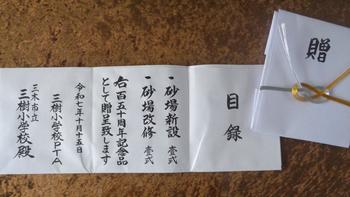 贈
目録
一 砂場新設 壱式
一 砂場改修 壱式
右百五十周年記念品
として贈呈致します
令和七年十月十五日
三樹小学校PTA
三木市立
三樹小学校殿